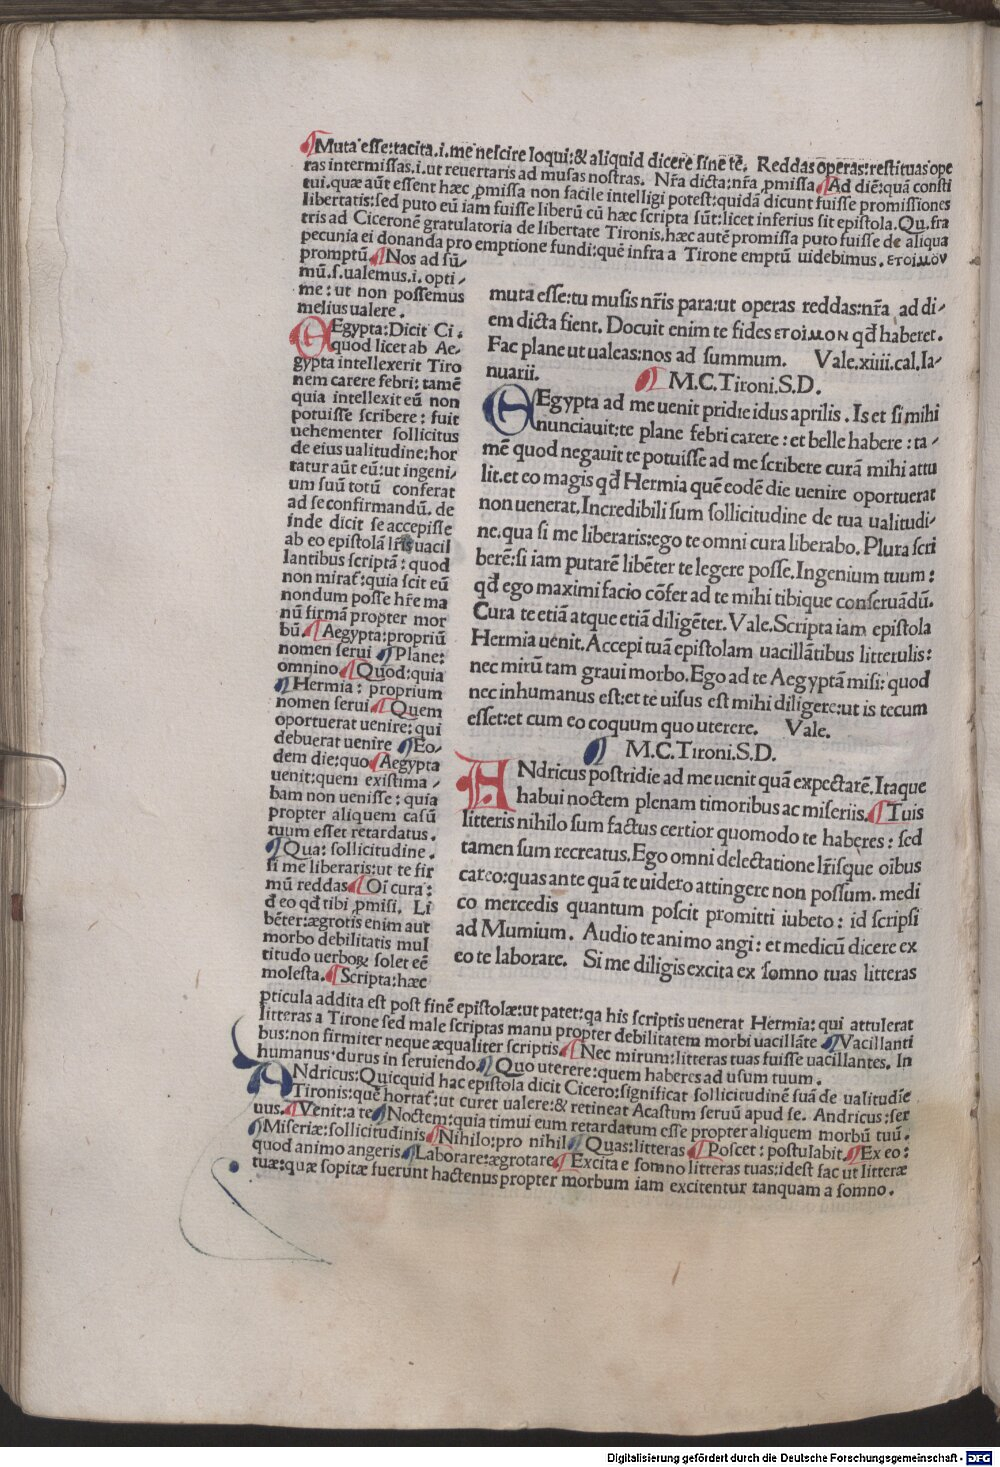 ¶Muta esse:tacita.i.me nescire loqui:& aliquid dicere sine te. Reddas operas:restituas ope
ras intermissas.i.ut reuertaris ad musas nostras. Nr̄a dicta:nr̄a ꝓmissa.¶Ad diē:quā consti
tui.quæ aūt essent hæc ꝓmissa non facile intelligi potest:quidā dicunt fuisse promissiones
libertatis:sed puto eū iam fuisse liberū cū hæc scripta sūt:licet inferius sit epistola.Qu.fra
tris ad Ciceronē gratulatoria de libertate Tironis.hæc autē promissa puto fuisse de aliqua
pecunia ei donanda pro emptione fundi:quē infra a Tirone emptū uidebimus. ετοιμον
promptū.¶Nos ad sū-
mū.s.ualemus.i.opti-
me: ut non possemus
melius ualere.
AEgypta:Dicit Ci.
quod licet ab Ae-
gypta intellexerit Tiro
nem carere febri: tamē
quia intellexit eū non
potuisse scribere: fuit
uehementer sollicitus
de eius ualitudine:hor
tatur aūt eū:ut ingeni-
um suū totū conferat
ad se confirmandū. de
inde dicit se accepisse
ab eo epistolā lr̄is uacil
lantibus scriptā: quod
non mirat̄:quia scit eū
nondum posse hr̄e ma
nū firmā propter mor
bū.¶Aegypta:propriū
nomen serui ¶Plane:
omnino ¶Quod:quia
¶Hermia: proprium
nomen serui ¶Quem
oportuerat uenire: qui
debuerat uenire ¶Eo-
dem die:quo ¶Aegypta
uenit:quem existima-
bam non uenisse: quia
propter aliquem casū
tuum esset retardatus.
¶Qua: sollicitudine.
si me liberaris:ut te fir
mū reddas ¶Oī cura:
đ eo qđ tibi ꝓmisi. Li
bēter:ægrotis enim aut
morbo debilitatis mul
titudo uerboꝝ solet eē
molesta.¶Scripta:hæc
muta esse:tu musis nr̄is para:ut operas reddas:nr̄a ad di-
em dicta fient. Docuit enim te fides ετοιμον qđ haberet.
Fac plane ut ualeas:nos ad summum. Vale.xiiii.cal.Ia-
nuarii.
¶ M.C.Tironi.S.D.
AEgypta ad me uenit pridie idus aprilis. Is et si mihi
nunciauit:te plane febri carere: et belle habere: ta-
mē quod negauit te potuisse ad me scribere curā mihi attu
lit.et eo magis qđ Hermia quē eodē die uenire oportuerat
non uenerat.Incredibili sum sollicitudine de tua ualitudi-
ne.qua si me liberaris:ego te omni cura liberabo.Plura scri
berē:si iam putarē libēter te legere posse.Ingenium tuum:
qđ ego maximi facio cōfer ad te mihi tibique conseruādū.
Cura te etiā atque etiā diligēter.Vale.Scripta iam epistola
Hermia uenit.Accepi tuā epistolam uacillātibus litterulis:
nec mirū tam graui morbo.Ego ad te Aegyptā misi: quod
nec inhumanus est:et te uisus est mihi diligere:ut is tecum
esset:et cum eo coquum quo uterere. Vale.
¶ M.C.Tironi.S.D.
ANdricus postridie ad me uenit quā expectarē.Itaque
habui noctem plenam timoribus ac miseriis.¶Tuis
litteris nihilo sum factus certior quomodo te haberes: sed
tamen sum recreatus.Ego omni delectatione lr̄isque oībus
careo:quas ante quā te uidero attingere non possum. medi
co mercedis quantum poscit promitti iubeto: id scripsi
ad Mumium. Audio te animo angi: et medicū dicere ex
eo te laborare. Si me diligis excita ex somno tuas litteras
pticula addita est post finē epistolæ:ut patet:qa his scriptis uenerat Hermia: qui attulerat
litteras a Tirone sed male scriptas manu propter debilitatem morbi uacillāte ¶Vacillanti
bus:non firmiter neque æqualiter scriptis ¶Nec mirum:litteras tuas fuisse uacillantes. In
humanus:durus in seruiendo ¶Quo uterere:quem haberes ad usum tuum.
ANdricus:Quicquid hac epistola dicit Cicero:significat sollicitudinē suā de ualitudīe
Tironis:quē hortat̄:ut curet ualere:& retineat Acastum seruū apud se. Andricus:ser
uus.¶Venit:a te ¶Noctem:quia timui eum retardatum esse propter aliquem morbū tuū.
¶Miseriæ:sollicitudinis ¶Nihilo:pro nihil ¶Quas:litteras ¶Poscet: postulabit.¶Ex eo:
quod animo angeris ¶Laborare:ægrotare ¶Excita e somno litteras tuas:idest fac ut litteræ
tuæ:quæ sopitæ fuerunt hactenus propter morbum iam excitentur tanquam a somno.
Digitalisierung gefördert durch die Deutsche Forschungsgemeinschaft - DFG